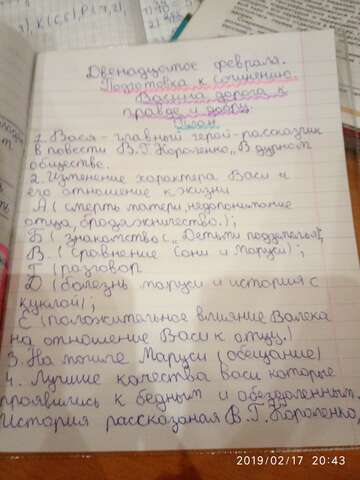 Двенадцатое февраля.
Подготовка к сочинению.
Васина дорога к
правде и добру.
План
1. Вася - главный герой-рассказчик
в повести В.Г Короленко „В дурном
обществе.
2. Изменение характера Васи и
его отношение к жизни
А (смерть матери, недопонимание
отца, бродяжничество.);
Б (знакомство с „Детьти подземелья");
В. (сравнение Сони и Маруси);
Г (разговор
Д (болезнь маруси и история с
куклой);
Е (положительное влияние Валека
на отношение Васи к отцу.)
3. На могиле Маруси (обещание)
4. Лучшие качества васи которые
проявились к бедным и обездоленным.
История рассказаная В.Г. Короленко,
2019/02/17 20:43